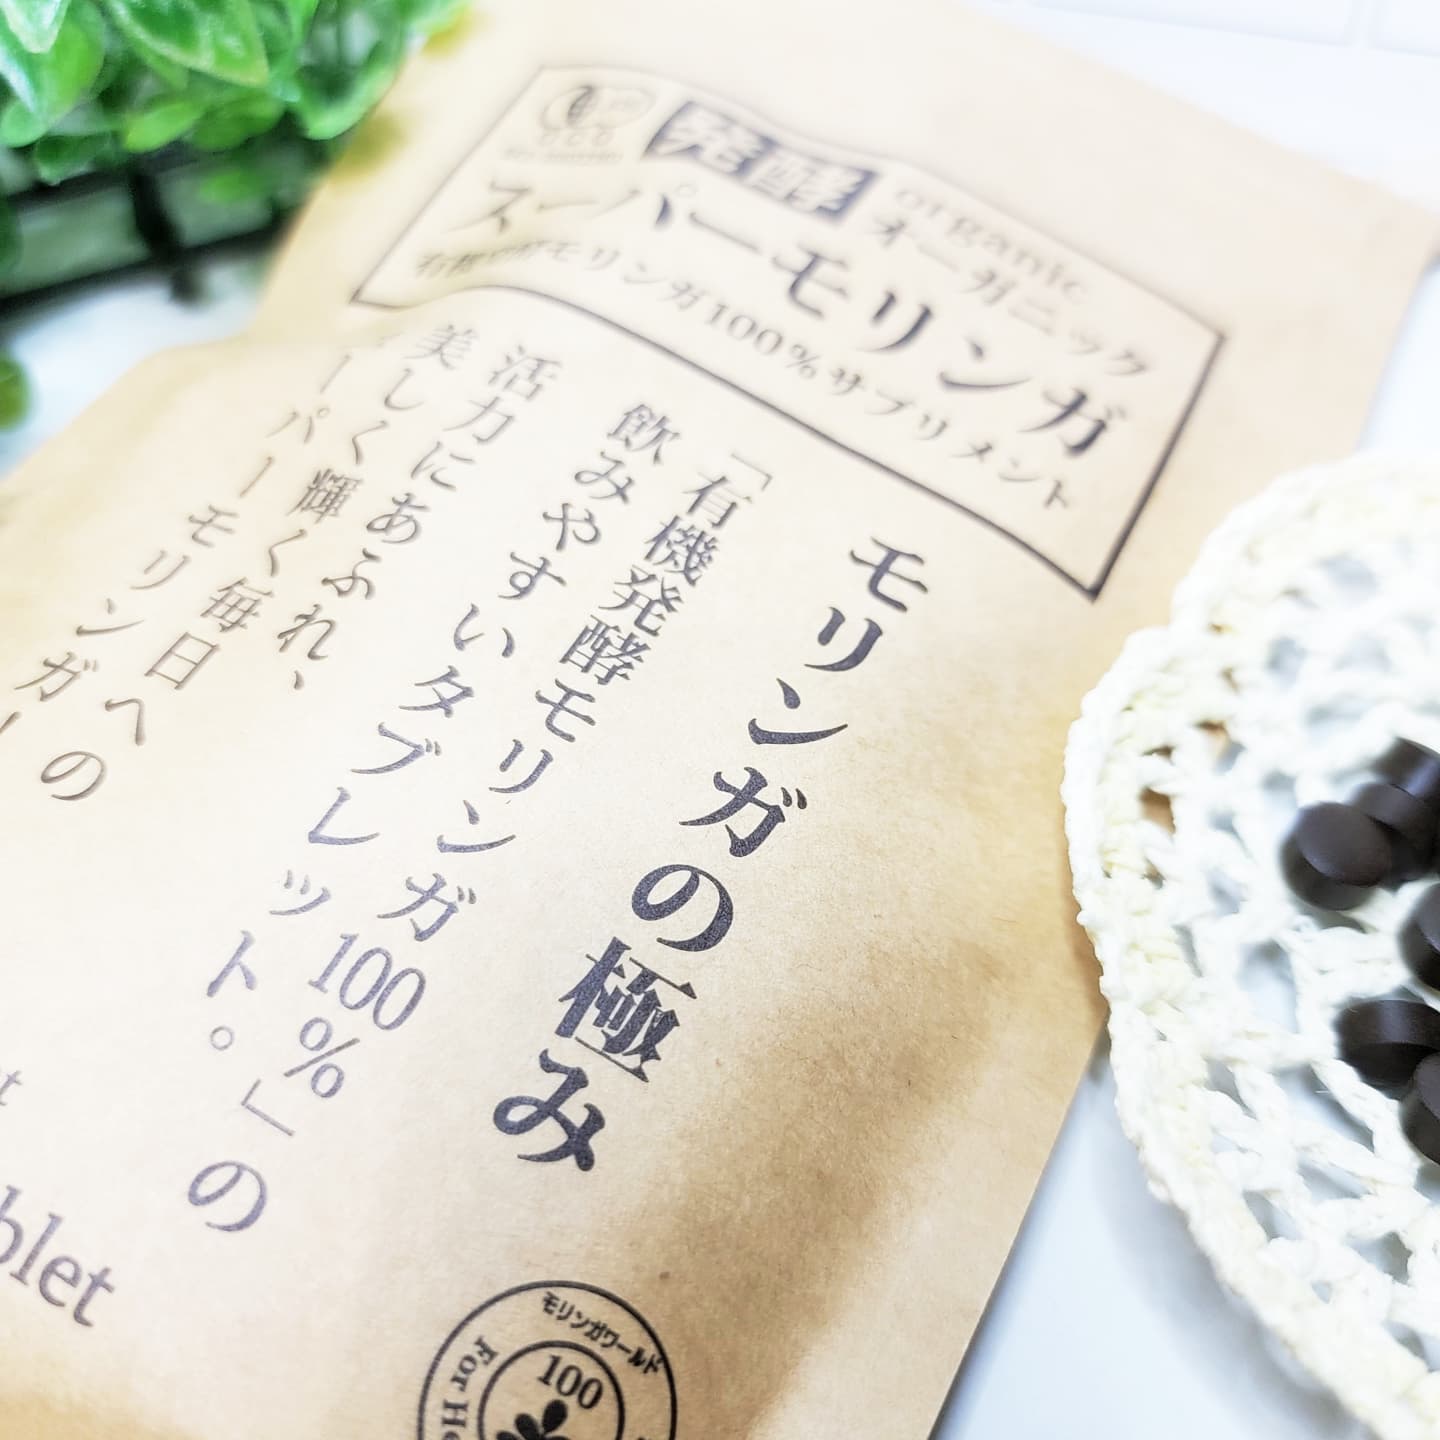 発酵
organic
オーガニック
スーパーモリンガ
有機発酵モリンガ100%サプリメント
モリンガの極み
「有機発酵モリンガ100%」の
飲みやすいタブレット。
活力にあふれ、
美しく輝く毎日への
ーパーモリンガ
blet
モリンガワールド
100
For He